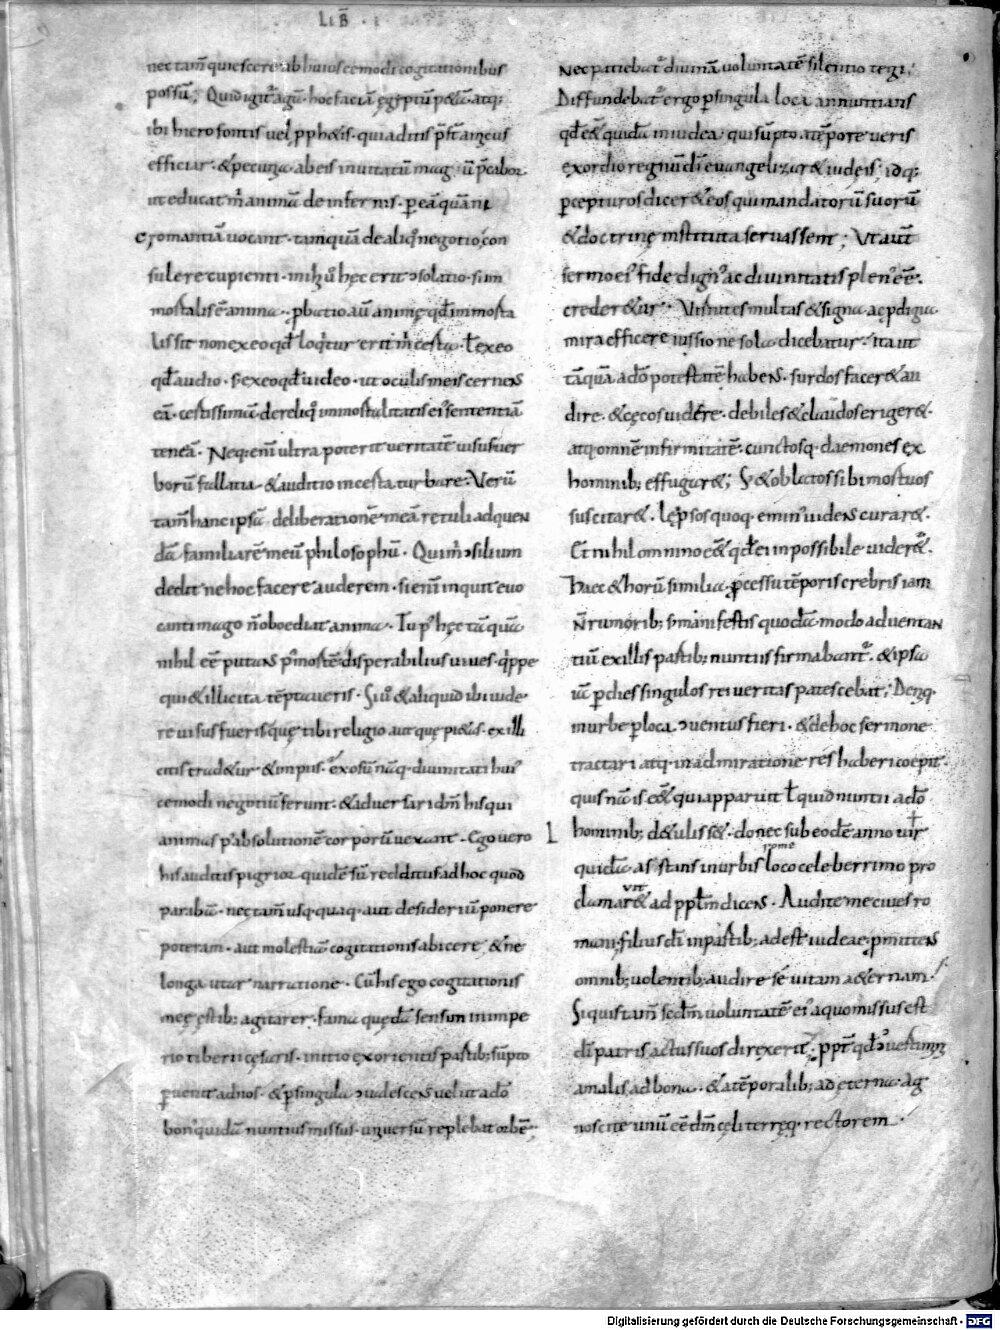 LIB̄ · I
nec tam̄ quiescere ab huiuscemodi cogitationibus
possū; Quid igit᷑ agā· hoc faciā ęgyptū petā· atq;
ibi hierofontis uel ꝓphetis· qui aditis p̄st̄ amicus
efficiar· & pecunia ab eis inuitatū mag̅ū p̄cabor·
ut educat m̄ animā de infernis· ꝑ eā quā ni
cromantiā uocant· tamquā de aliq̊ negotio con
sulere cupienti· mihi ů hęc erit ↄsolatio· si in
mortalis ē anima· ꝓbatio aū animę qđ inmorta
lis sit non ex eo qđ loq̇tur erit m̄ certa· ł ex eo
qđ audio· s; ex eo qđ uideo· ut oculis meis cernens
eā· certissimā de reliq̊ inmortalitatis ei᷒ sententiā
teneā· Neq; enī ultra poterit ueritatē uisus uer
borū fallatia· & auditio incerta turbare· Verū
tam̄ hanc ipsā deliberationē meā retuli ad quen
dā familiarē meū philosophū· Qui m̄ ↄsilium
dedit ne hoc facere auderem· si enī inquit euo
canti mago n̄ oboediat anima· Tu p᷒ hęc tāquā
nihil eē putans p᷒ mortē disperabilius uiues· q̇ppe
qui & illicita tēptaueris· Si ů & aliquid ibi uide
re uisus fueris quę tibi religio aut quę pietas· ex illi
citis tradetur· & impiis· exosū nāq· diuinitati hui᷒
cemodi negotiū ferunt· & aduersari dm̄ his qui
animas p᷒ absolutionē corporū uexant· Ego uero
his auditis pigrior quidē sū redditus ad hoc quod
parabā· nec tam̄ usq·quaq· aut desideriū ponere
poterā· aut molestiā cogitationis abicere· & ne
longa utar narratione· Cū his ego cogitationis
meę ęstib; agitarer· fama quędā sensim in impe
rio tiberii cęsaris· initio ex orientis partib; sūpto
ꝑuenit ad nos· & ꝑ singula ↄualescens uelut a dō
bon᷒ quidā nuntius missus· uniuersū replebat orbē·
Nec patiebat᷑ diuinā uoluntatē silentio tegi;
Diffundebat᷑ ergo ꝑ singula loca annuntians
qđ eēt quidā in iudea· qui sūpto a tēpore ueris
exordio regnū dī euangelizaret iudeis· idq;
ꝑcepturos diceret eos qui mandatorū suorū
& doctrinę instituta seruassent; Vt aut̄
sermo ei᷒ fide dign᷒ ac diuinitatis plen᷒ eēt
crederetur· Virtutes multas & signa ac ꝓdigia
mira efficere iussione sola dicebatur· ita ut
tāquā a dō potestatē habens· surdos faceret au
dire· & cęcos uidere· debiles & claudos erigeret·
atq· omnē infirmitatē· cunctosq· daemones ex
hominib; effugaret; S; & oblatos sibi mortuos
suscitaret· leprosos quoq· emin᷒ uidens curaret·
Et nihil omnino eēt qđ ei inpossibile uideret᷑·
Haec & horū similia· ꝓcessu tēporis crebris iam
n̄ rumorib; s; manifestis quodā·modo aduentan
tiū ex illis partib; nuntiis firmabant᷑· & ipsa
iā ꝑ dies singulos rei ueritas patescebat; Deniq·
in urbe ꝑ loca ↄuentus fieri· & de hoc sermone
tractari atq· in admiratione res haberi coepit·
quis nā is eēt qui apparuit ł quid nuntii a dō
hominib; detulisset· donec sub eodē anno uir
quidā astans in urbis rome loco celeberrimo pro
clamaret ad pplm̄ dicens· Audite me ciues ro
mani· filius dī in partib; adest iudeae· ꝓmittens
omnib; uolentib; audire se uitam aeternam·
Si quis tam̄ scdm̄ uoluntatē ei᷒ a quo missus est
dī patris actus suos direxerit· ppt̄ qđ ↄuertimini
a malis ad bona· & a tēporalib; ad ęterna· Ag
noscite unū eē dm̄ cęli terręq· rectorem·
Digitalisierung gefördert durch die Deutsche Forschungsgemeinschaft - DFG